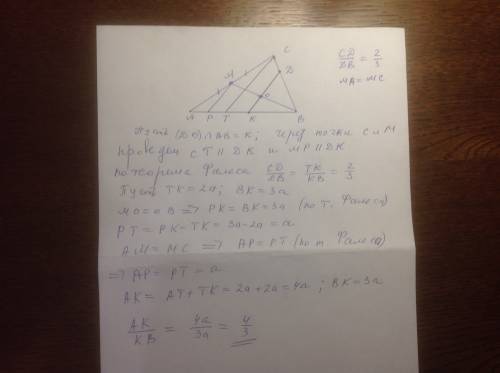 C
D
M
1
1
O
A P T K B
CD/DB = 2/3
MA = MC
Пусть (DO) ∩ AB = K; через точки C и M
проведем CT ∥ DK и MP ∥ DK
по теореме Фалеса CD/DB = TK/KB = 2/3
Пусть TK = 2a; BK = 3a
MO = OB ⟹ PK = BK = 3a (по т. Фалеса)
PT = PK - TK = 3a - 2a = a
AM = MC ⟹ AP = PT (по т. Фалеса)
⟹ AP = PT = a
AK = AT + TK = 2a + 2a = 4a; BK = 3a
AK/KB = 4a/3a = 4/3